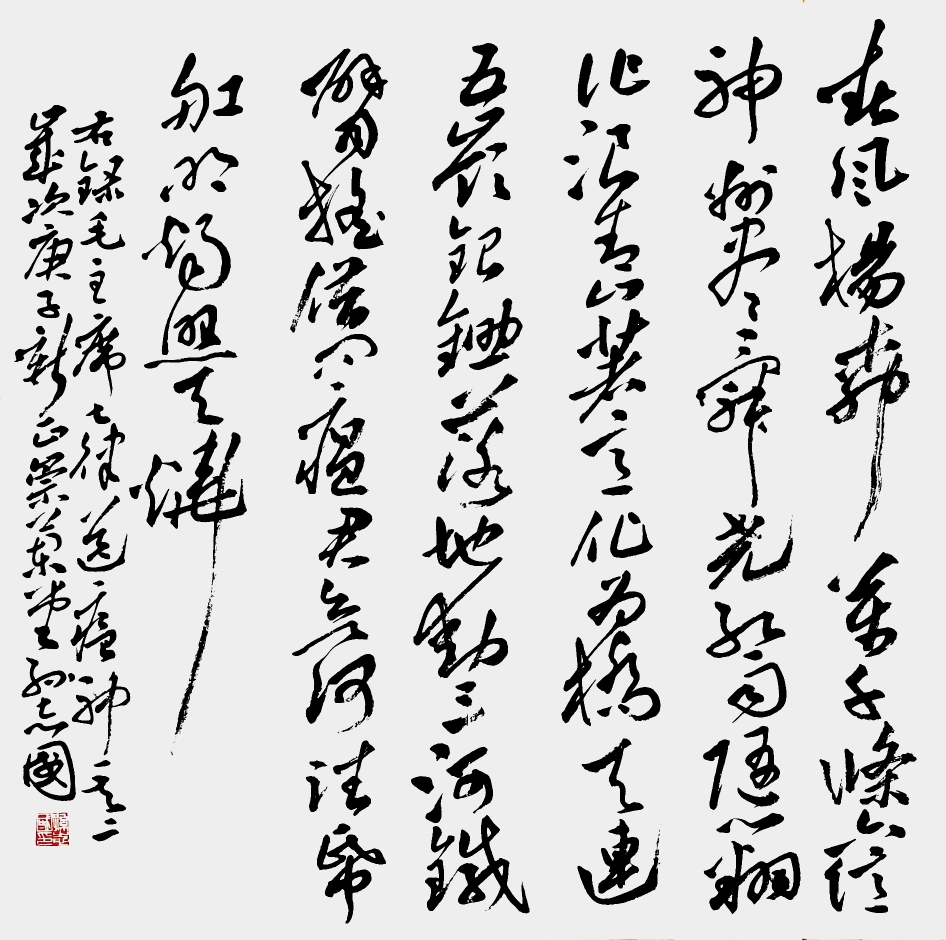 春風楊柳萬千條六億
神州盡舜堯紅雨隨心翻
作浪青山著意化為橋天連
五嶺銀鋤落地動三河鐵
臂搖借問瘟君欲何往帋
舡明燭照天燒
右錄毛主席七律送瘟神其二
歲次庚子新正崇蘭堂孫志國